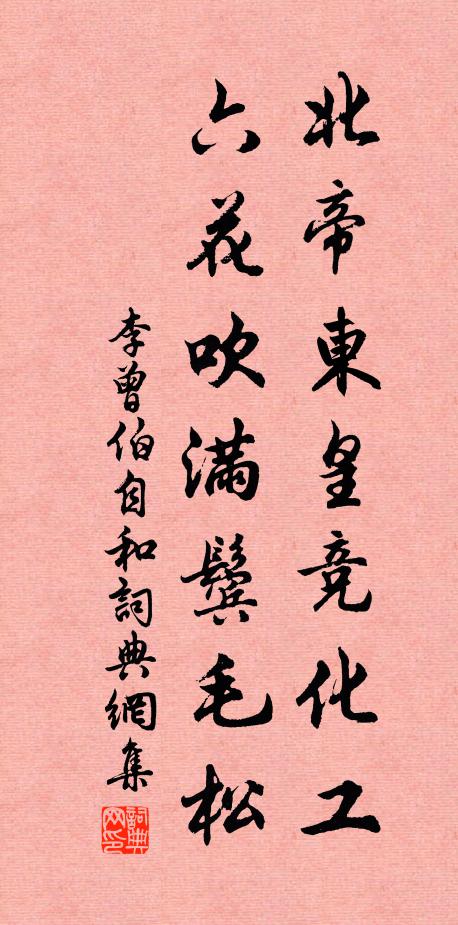 北帝東皇競化工
六花吹滿鬓毛松
李曾伯自和詞典網集
詞典网印